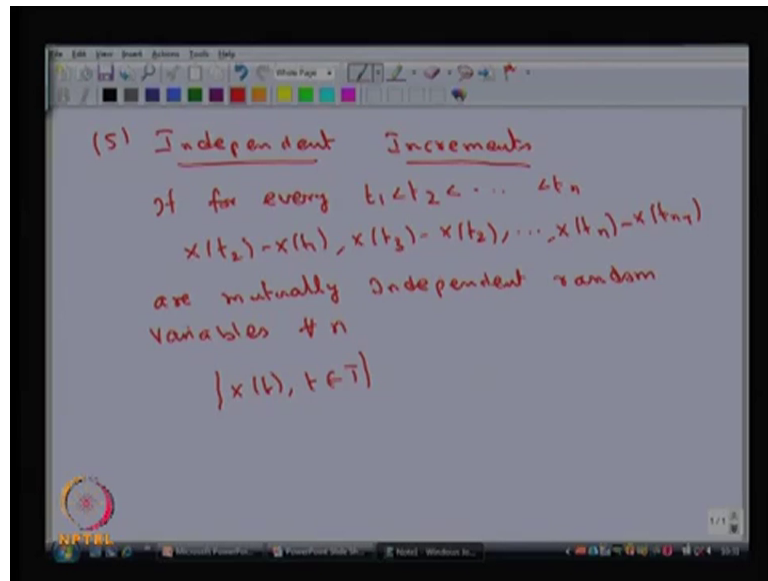 File Edit View Insert Actions Tools Help
Whole Page
(5) Independent Increments
If for every t₁ < t₂ < ... < tₙ
x(t₂) - x(t₁), x(t₃) - x(t₂), ..., x(tₙ) - x(tₙ₋₁)
are mutually Independent random
variables ∀ n
{x(t), t ∈ T}
NPTEL
1/1
Microsoft PowerPoi... PowerPoint Slide Sh... Note1 - Windows Jo...